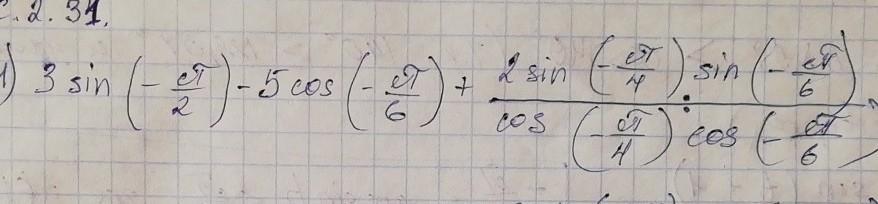 2.31.
1) 3 sin (-π/2) - 5 cos (-π/6) + 2 sin (-π/4) sin (-π/6) / cos (-π/4) : cos (-π/6)